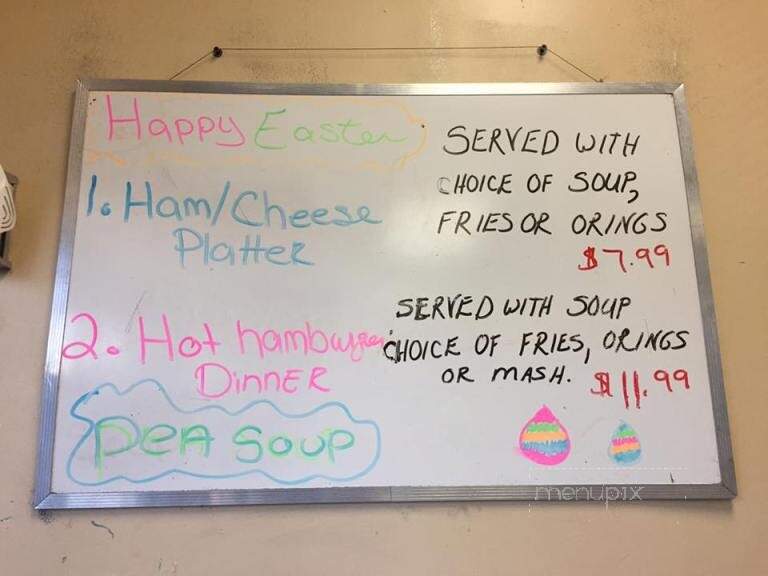 Happy Easter
1. Ham/Cheese
Platter
SERVED WITH
CHOICE OF SOUP,
FRIES OR ORINGS
$7.99
2. Hot hamburger
DINNER
SERVED WITH SOUP
CHOICE OF FRIES, ORINGS
OR MASH. $11.99
PEA SOUP
menupix